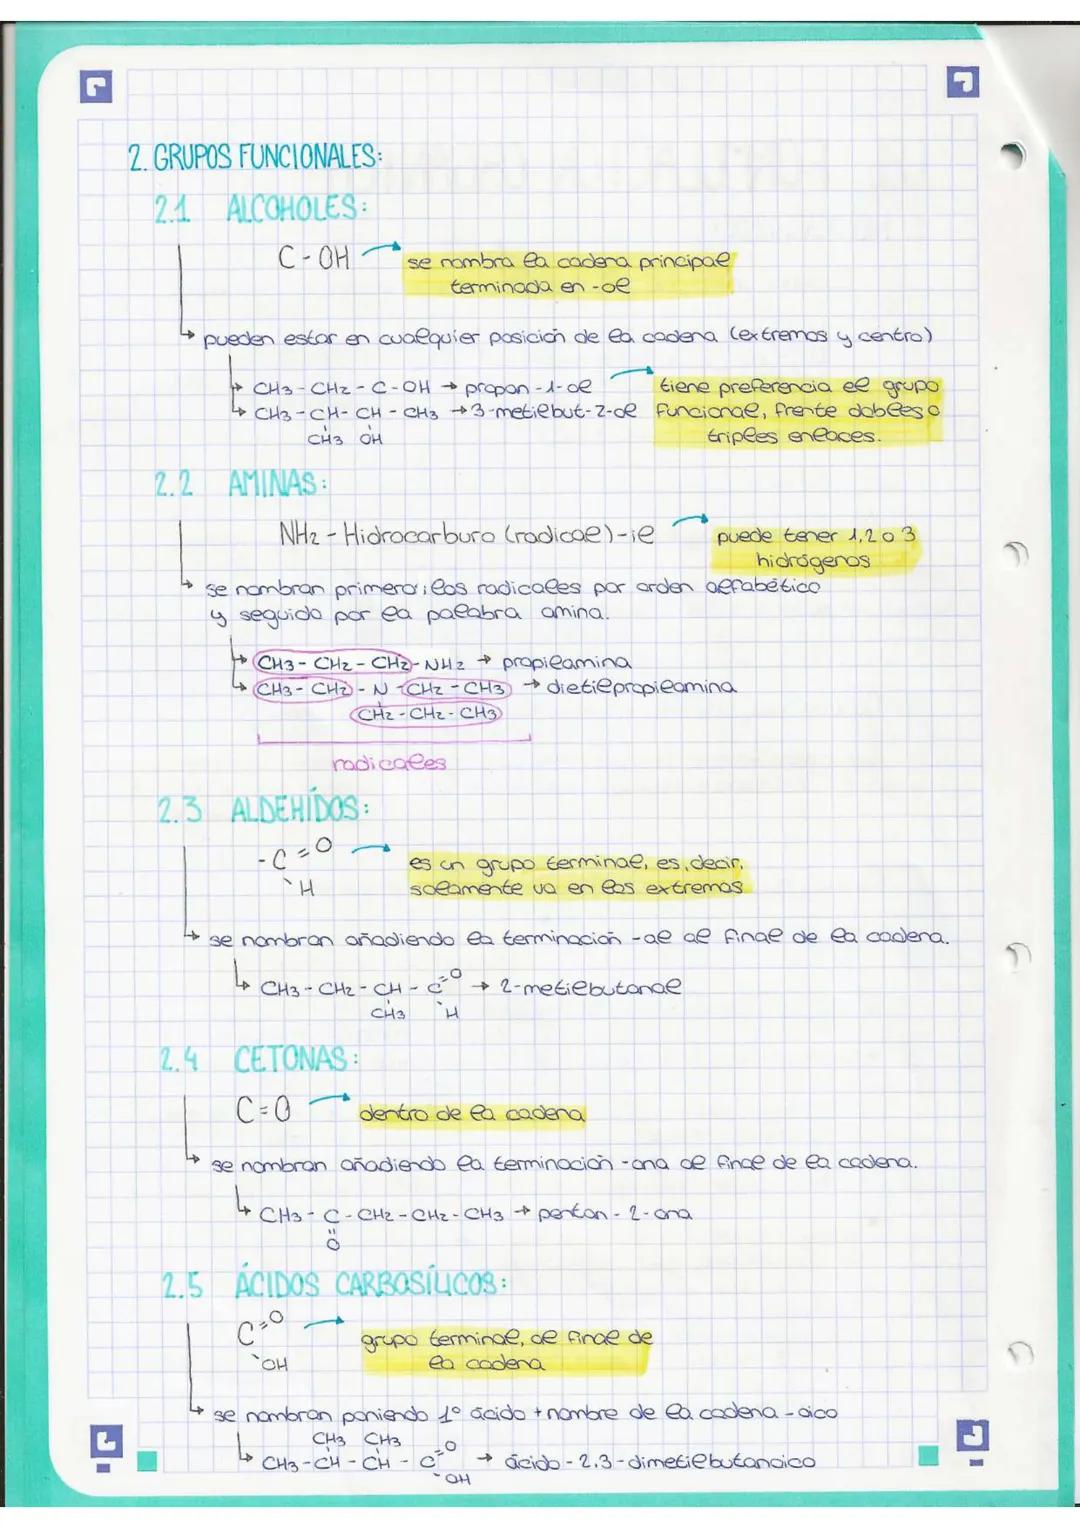 2. GRUPOS FUNCIONALES:
2.1 ALCOHOLES:
C-OH → se nombra la cadena principal
terminada en -ol
↳ pueden estar en cualquier posición de la cadena (extremos y centro)
↳ CH3-CH2-C-OH → propan-1-ol
↳ CH3-CH-CH-CH3 → 3-metilbut-2-ol
CH3 OH
tiene preferencia el grupo
funcional, frente dobles o
triples enlaces.
2.2 AMINAS:
NH2-Hidrocarburo (radical)-il → puede tener 1,2 o 3
hidrógenos
↳ se nombran primero: los radicales por orden alfabético
y seguido por la palabra amina.
↳ CH3-CH2-CH2-NH2 → propilamina
↳ CH3-CH2-N-CH2-CH3 → dietilpropilamina
CH2-CH2-CH3
radicales
2.3 ALDEHÍDOS:
-C=O
H
es un grupo terminal, es, decir,
solamente va en los extremos
↳ se nombran añadiendo la terminación -al al final de la cadena.
↳ CH3-CH2-CH-C=O → 2-metilbutanal
CH3 H
2.4 CETONAS:
C=O → dentro de la cadena
↳ se nombran añadiendo la terminación -ona al final de la cadena.
↳ CH3-C-CH2-CH2-CH3 → pentan-2-ona
O
2.5 ÁCIDOS CARBOSÍLICOS:
C=O
OH
grupo terminal, al final de
la cadena
↳ se nombran poniendo 1º ácido + nombre de la cadena -oico
CH3 CH3
↳ CH3-CH-CH-C=O → ácido-2.3-dimetilbutanoico
OH